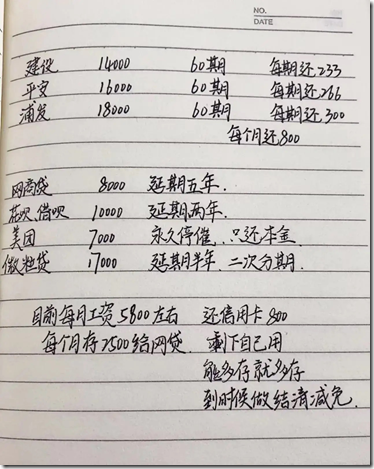 NO.
DATE
建设 14000 60期 每期还233
平安 16000 60期 每期还266
浦发 18000 60期 每期还300
每个月还800
网商贷 8000 延期五年.
花呗、借呗 10000 延期两年.
美团 7000 永久停催,只还本金.
微粒贷 17000 延期半年,二次分期.
目前每月工资5800左右 还信用卡800
每个月存2500给网贷. 剩下自己用
能多存就多存
到时候做结清减免.